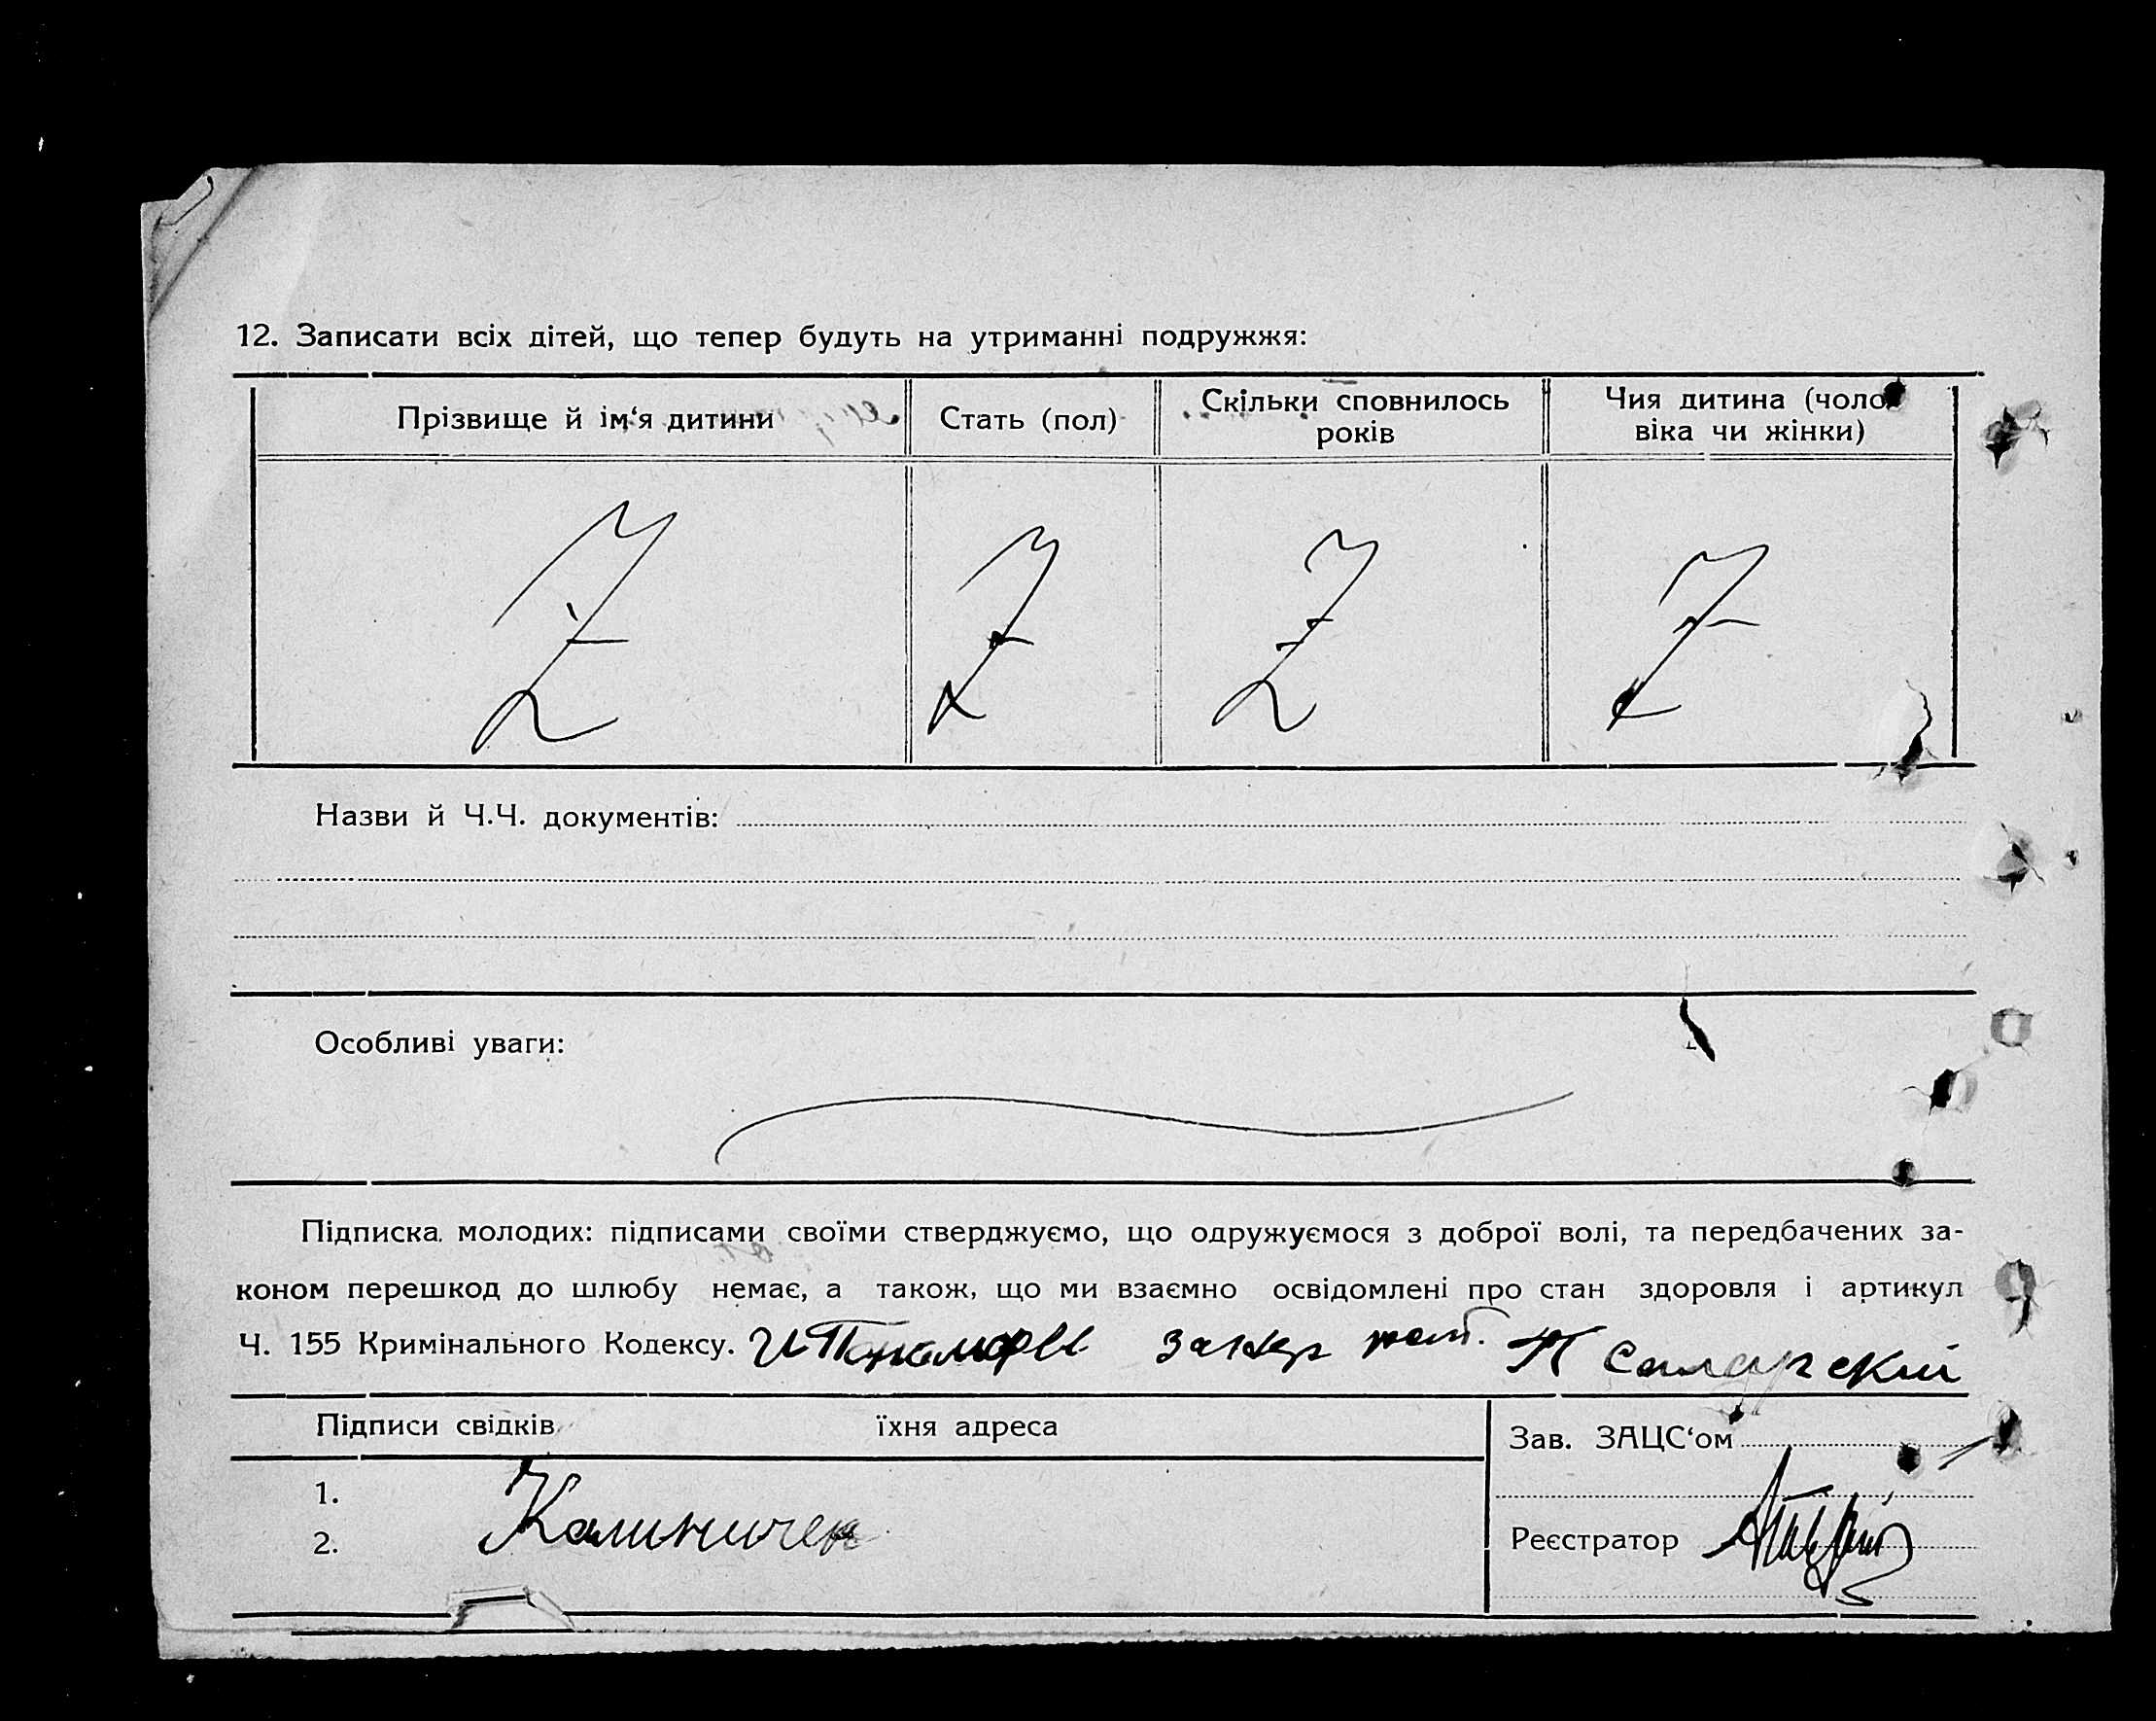 12. Записати всіх дітей, що тепер будуть на утриманні подружжя:
Прізвище й ім‘я дитини
Стать (пол)
Скільки сповнилось
років
Чия дитина (чоло
віка чи жінки)
Z Z Z Z
Назви й Ч.Ч. документів:
Особливі уваги:
Підписка молодих: підписами своїми стверджуємо, що одружуємося з доброї волі, та передбачених за-
коном перешкод до шлюбу немає, а також, що ми взаємно освідомлені про стан здоровля і артикул
Ч. 155 Кримінального Кодексу.
Підписи свідків їхня адреса
Зав. ЗАЦС‘ом
1.
2. Калиничен
Реєстратор